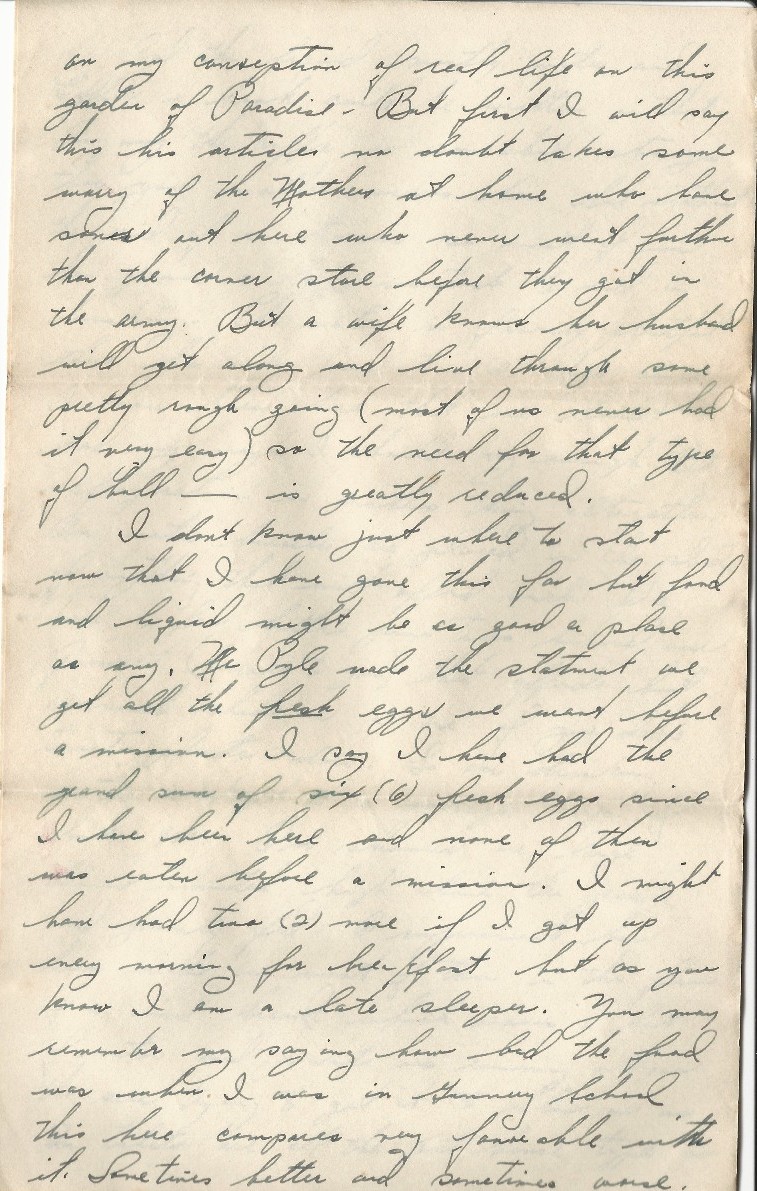 on my conseption of real life on this
garden of Paradise - But first I will say
this his articles no doubt takes some
worry of the Mothers at home who have
sones out here who never went further
than the corner store before they got in
the army. But a wife knows her husband
will get along and live through some
pretty rough going (most of us never had
it very easy) so the need for that type
of bull —— is greatly reduced.
I don't know just where to start
now that I have gone this far but food
and liquid might be as good a place
as any. Mr Pyle made the statment we
get all the fresh eggs we want before
a mission. I say I have had the
grand sum of six (6) fesh eggs since
I have been here and none of them
was eaten before a mission. I might
have had two (2) more if I got up
every morning for breakfast but as you
know I am a late sleeper. You may
remember my saying how bad the food
was when I was in Gunnery School
this here compares very favorable with
it. Sometimes better and sometimes worse.